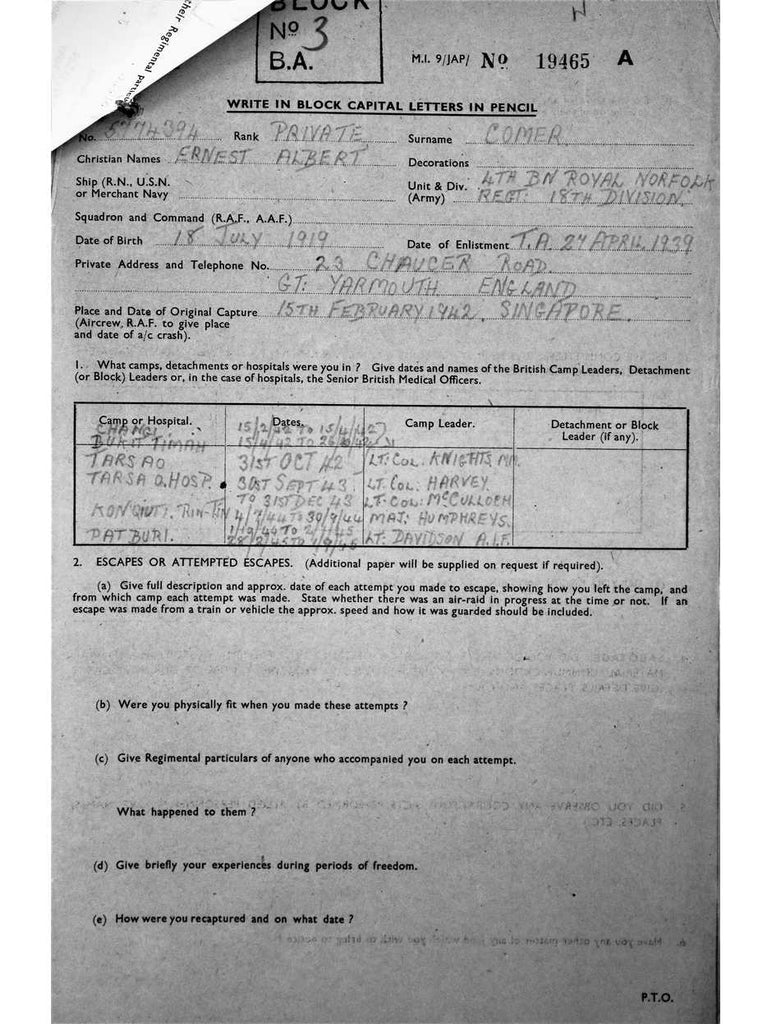 their Regimental partic
BLOCK
Nº 3
B.A.
M.I. 9/JAP/ Nº 19465 A
WRITE IN BLOCK CAPITAL LETTERS IN PENCIL
No. 5774394 Rank PRIVATE Surname COMER
Christian Names ERNEST ALBERT Decorations
Ship (R.N., U.S.N. or Merchant Navy Unit & Div. (Army) 4TH BN ROYAL NORFOLK REGT. 18TH DIVISION.
Squadron and Command (R.A.F., A.A.F.)
Date of Birth 18 JULY 1919 Date of Enlistment T.A. 27 APRIL 1939
Private Address and Telephone No. 23 CHAUCER ROAD.
GT: YARMOUTH ENGLAND
Place and Date of Original Capture 15TH FEBRUARY 1942. SINGAPORE.
(Aircrew, R.A.F. to give place
and date of a/c crash).
1. What camps, detachments or hospitals were you in ? Give dates and names of the British Camp Leaders, Detachment
(or Block) Leaders or, in the case of hospitals, the Senior British Medical Officers.
Camp or Hospital. Dates. Camp Leader. Detachment or Block
Leader (if any).
CHANGI 15/2/42 TO 15/4/42
BUKIT TIMAH 15/4/42 TO
TARSAO 31ST OCT 42 LT: COL: KNIGHTS
TARSAO. HOSP. 30ST SEPT 43 LT. COL: HARVEY.
TO 31ST DEC 43 LT-COL: McCULLOCH
RIN-TIN 4/7/44 TO 30/9/44 MAJ: HUMPHREYS.
PATBURI. LT: DAVIDSON A.I.F.
2. ESCAPES OR ATTEMPTED ESCAPES. (Additional paper will be supplied on request if required).
(a) Give full description and approx. date of each attempt you made to escape, showing how you left the camp, and
from which camp each attempt was made. State whether there was an air-raid in progress at the time or not. If an
escape was made from a train or vehicle the approx. speed and how it was guarded should be included.
(b) Were you physically fit when you made these attempts ?
(c) Give Regimental particulars of anyone who accompanied you on each attempt.
What happened to them ?
(d) Give briefly your experiences during periods of freedom.
(e) How were you recaptured and on what date ?
P.T.O.